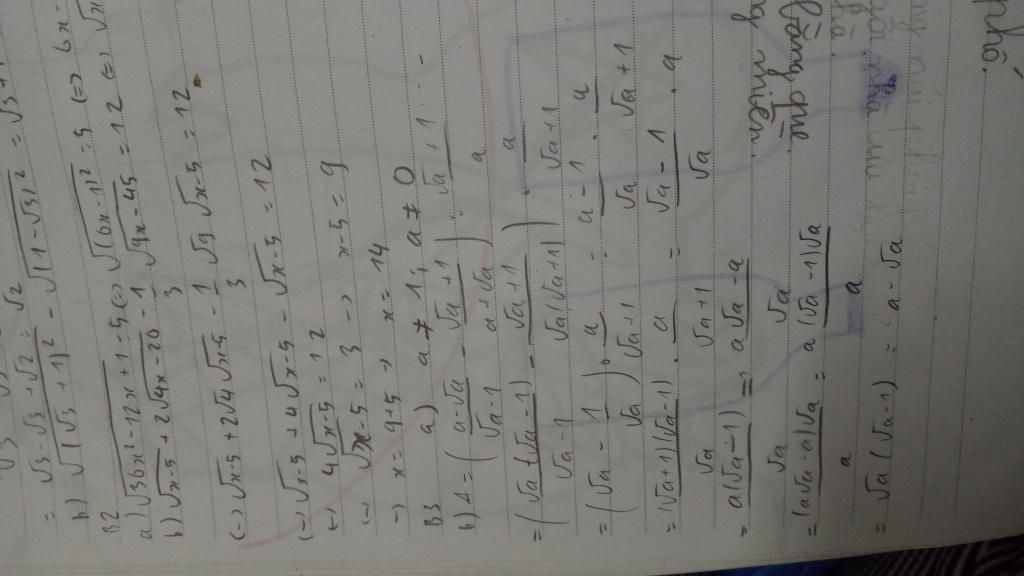 = √3 - √3 + √2 = √2
b) √(√3 + 1)² - √(1 - √3)² = √3 + 1
B2
a) √36x² - 12x + 1 = 5 (=) √(6x - 1)² = 5 (=) 6x -
b) √x-5 + 2√4x-20 - 1/3 √9x-45 = 12 (=) √x
(=) √x-5 + 2√4 √x-5 - 1/3 √9 √x-5 = 12
(=) √x-5 + 4√x-5 - √x-5 = 12
(=) 4√x-5 = 12
(=) √x-5 = 3 -> x-5 = 9
-> x = 9+5 -> x = 14
B3 a) a ≠ 1; a ≠ 0
b) A = (a-√a/√a-1 - √a+1/a+√a) : √a+1/a
= (√a(√a-1)/√a-1 - √a+1/√a(√a+1)) . a/√a+1
= (√a - 1/√a) . a/√a+1 = a-1/√a . a/√a+1
= (√a+1)(√a-1)/√a . a/√a+1 = √a-1/√a . a
= a(√a-1)/√a = a√a-a/√a
= (a√a-a)√a/a = a(√a-1)√a/a
= √a(√a-1) = a-√a